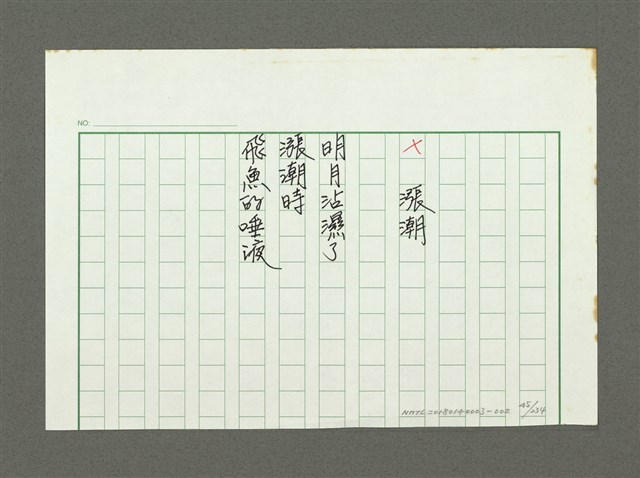 NO:
× 漲潮
明月沾濕了
漲潮時
飛魚的唾液
NMTL20180140003-002